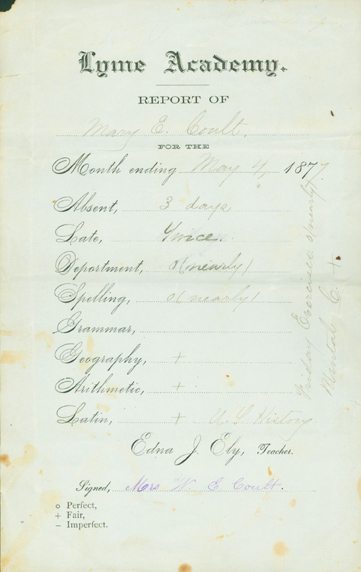 Lyme Academy.
REPORT OF
Mary E. Coult.
FOR THE
Month ending May 4, 1877
Absent, 3 days
Late, Twice.
Deportment, o (nearly)
Spelling, o (nearly)
Grammar,
Geography, +
Arithmetic, +
Latin, + U. S. History
Edna J. Ely, Teacher.
Signed, Mrs W. E Coult.
o Perfect,
+ Fair,
– Imperfect.
Friday Exercises (nearly)